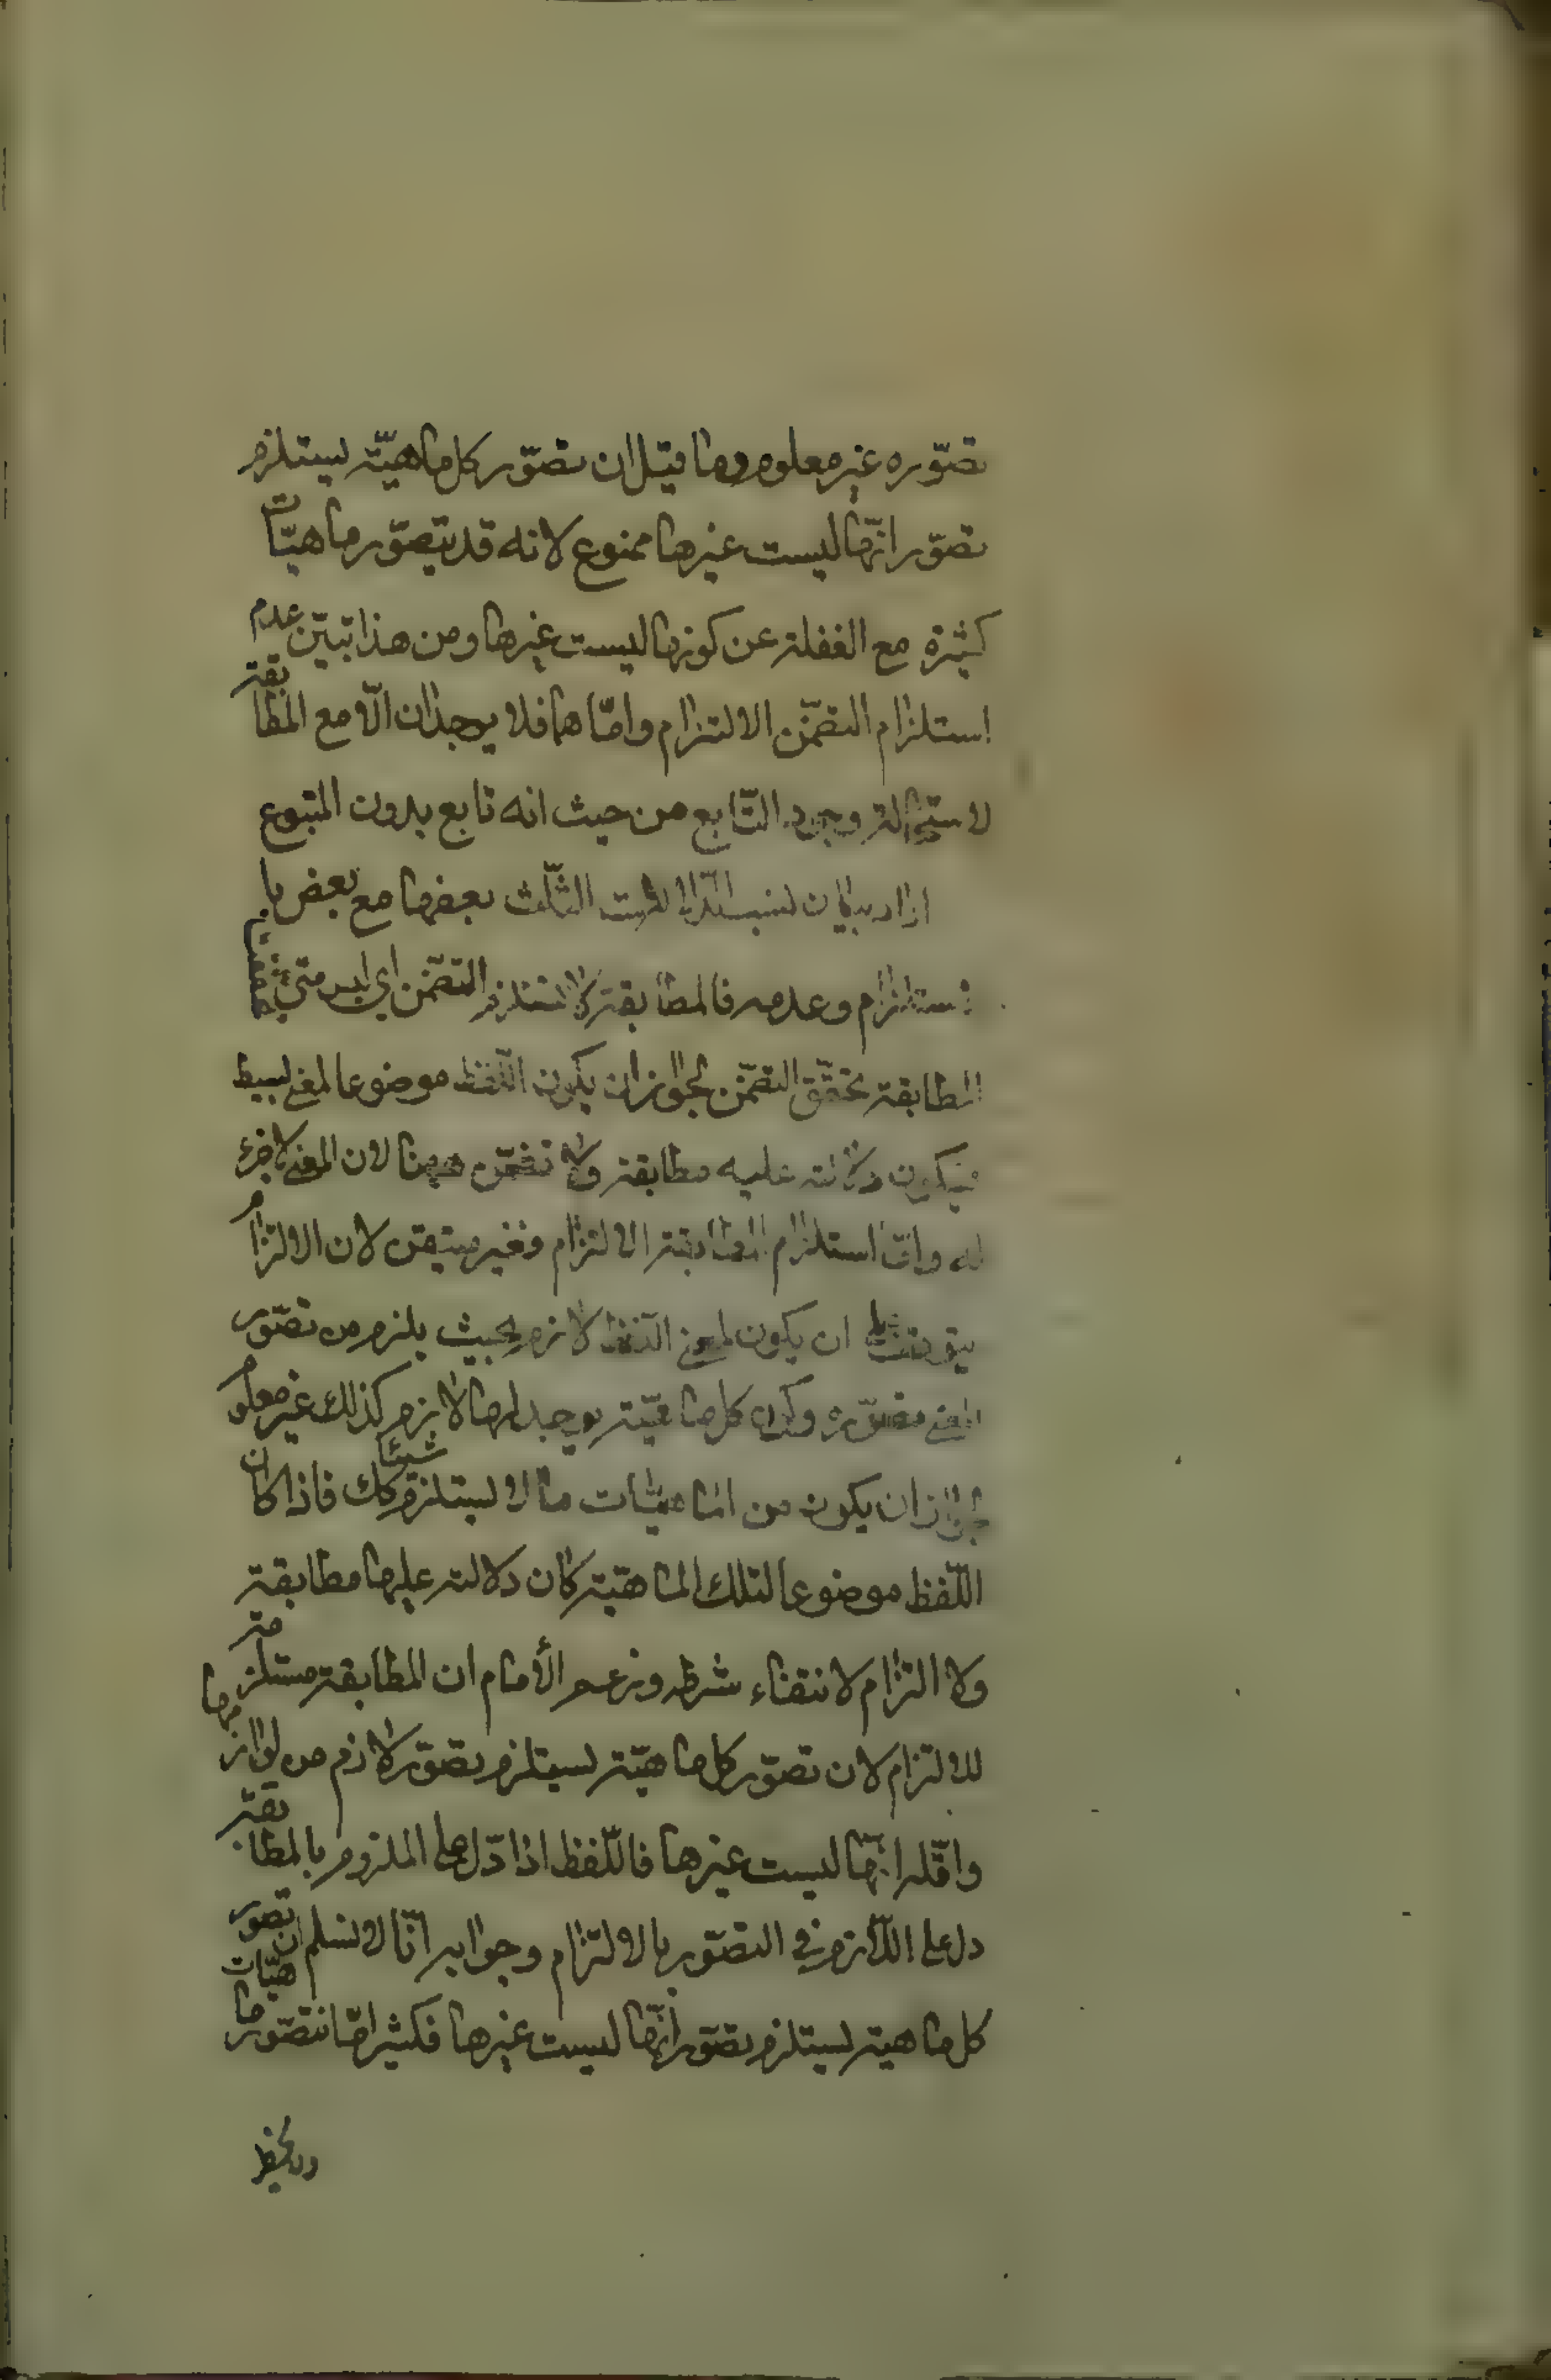 تصوّره غير معلوم وما قيل ان تصوّر كل ماهيّة يستلزم
تصوّر انّها ليست غيرها ممنوع لانه قد يتصوّر ماهيّات
كثيرة مع الغفلة عن كونها ليست غيرها ومن هذا تبيّن عدم
استلزام التضمّن الالتزام وامّا هما فلا يوجدان الّا مع المطابقة
لاستحالة وجود التّابع من حيث انه تابع بدون المتبوع
اراد بيان نسب الدلالات الثّلث بعضها مع بعض با
لاستلزام وعدمه فالمطابقة لا تستلزم التضمّن اي ليس متى تحقق
المطابقة تحقّق التضمّن لجواز ان يكون اللّفظ موضوعا لمعنى بسيط
فيكون دلالته عليه مطابقة ولا تضمّن ههنا لان المعنى لا جزء
له وامّا استلزام المطابقة الالتزام فغير متيقن لان الالتزام
يتوقف على ان يكون لمعنى اللّفظ لازم بحيث يلزم من تصوّر
المعنى تصوّره وكون كل ماهيّة يوجد لها لازم كذلك غير معلوم
لجواز ان يكون من الماهيّات ما لا يستلزم شيئا كك فاذا كان
اللّفظ موضوعا لتلك الماهيّة كان دلالته عليها مطابقة
ولا التزام لانتفاء شرطه وزعم الأمام ان المطابقة مستلزمة
للالتزام لان تصوّر كل ماهيّة يستلزم تصوّر لازم من لوازمها
واقّله انّها ليست غيرها فاللّفظ اذا دّل على الملزوم بالمطابقة
دل على اللّازم في التصوّر بالالتزام وجوابه انّا لا نسلم ان تصور
كل ماهية يستلزم تصوّر انّها ليست غيرها فكثيرا مّا نتصّور ماهيّات